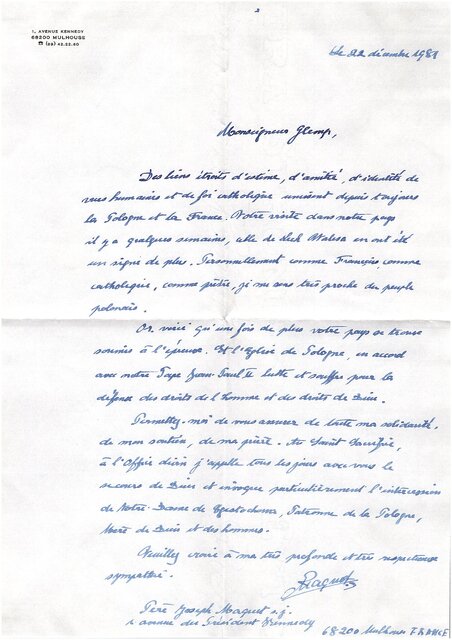 1, AVENUE KENNEDY
68200 MULHOUSE
☎ (89) 42.22.40
le 22 décembre 1981
Monseigneur Glemp,
Des liens étroits d'estime, d'amitié, d'identité de
vues humaines et de foi catholique unissent depuis toujours
la Pologne et la France. Votre visite dans notre pays
il y a quelques semaines, celle de Lech Walesa en ont été
un signe de plus. Personnellement comme Français, comme
catholique, comme prêtre, je me sens très proche du peuple
polonais.
Or voici qu'une fois de plus votre pays se trouve
soumis à l'épreuve. Et l'Eglise de Pologne, en accord
avec notre Pape Jean-Paul II lutte et souffre pour la
défense des droits de l'homme et des droits de Dieu.
Permettez-moi de vous assurer de toute ma solidarité,
de mon soutien, de ma prière. Au Saint Sacrifice,
à l'Office divin j'appelle tous les jours avec vous le
secours de Dieu et invoque particulièrement l'intercession
de Notre-Dame de Czestochowa, Patronne de la Pologne,
Mère de Dieu et des hommes.
Veuillez croire à ma très profonde et très respectueuse
sympathie.
JMaquet
Père Joseph Maquet s.j.
1 avenue du Président Kennedy
68200 Mulhouse FRANCE